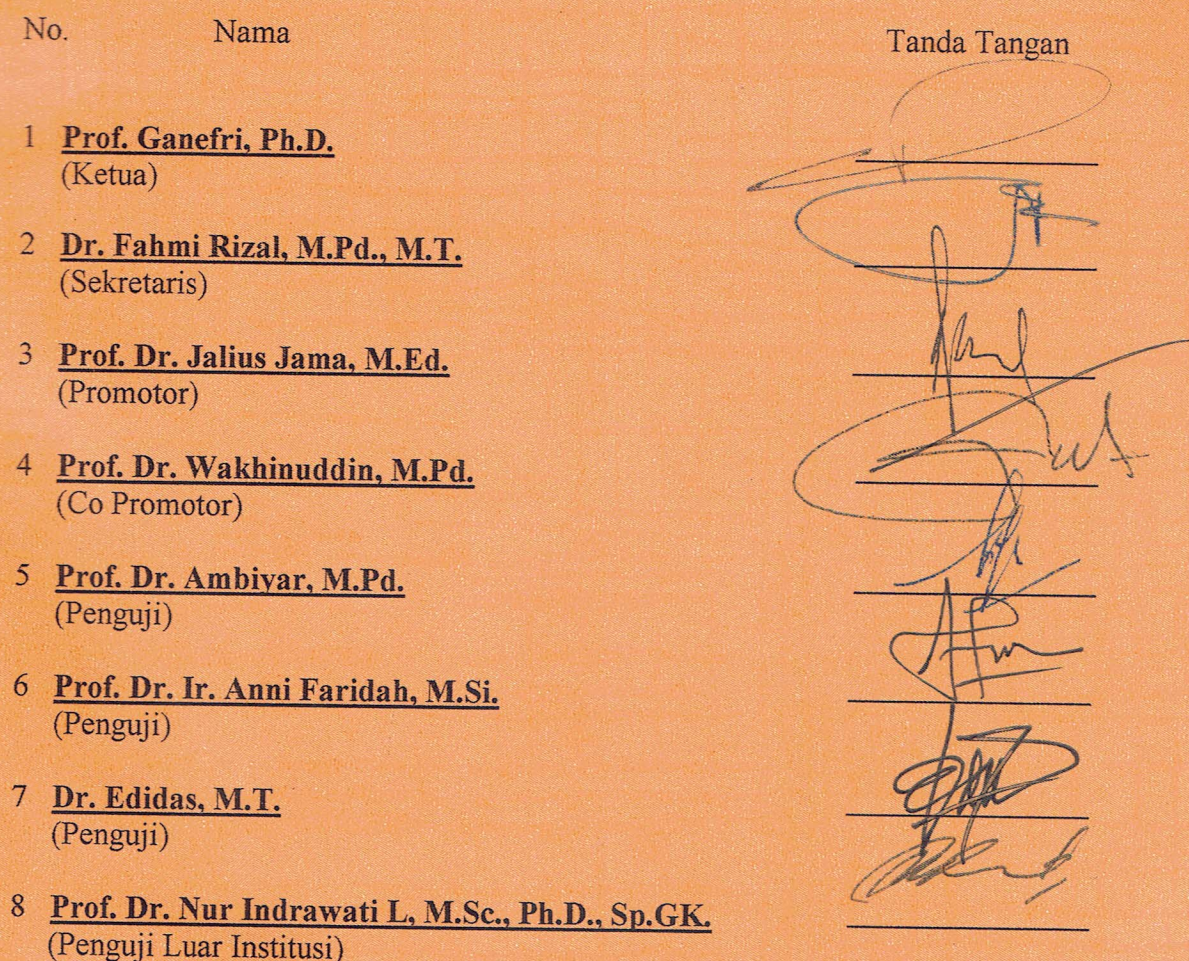 No. Nama Tanda Tangan
1 Prof. Ganefri, Ph.D.
(Ketua)
2 Dr. Fahmi Rizal, M.Pd., M.T.
(Sekretaris)
3 Prof. Dr. Jalius Jama, M.Ed.
(Promotor)
4 Prof. Dr. Wakhinuddin, M.Pd.
(Co Promotor)
5 Prof. Dr. Ambiyar, M.Pd.
(Penguji)
6 Prof. Dr. Ir. Anni Faridah, M.Si.
(Penguji)
7 Dr. Edidas, M.T.
(Penguji)
8 Prof. Dr. Nur Indrawati L, M.Sc., Ph.D., Sp.GK.
(Penguji Luar Institusi)